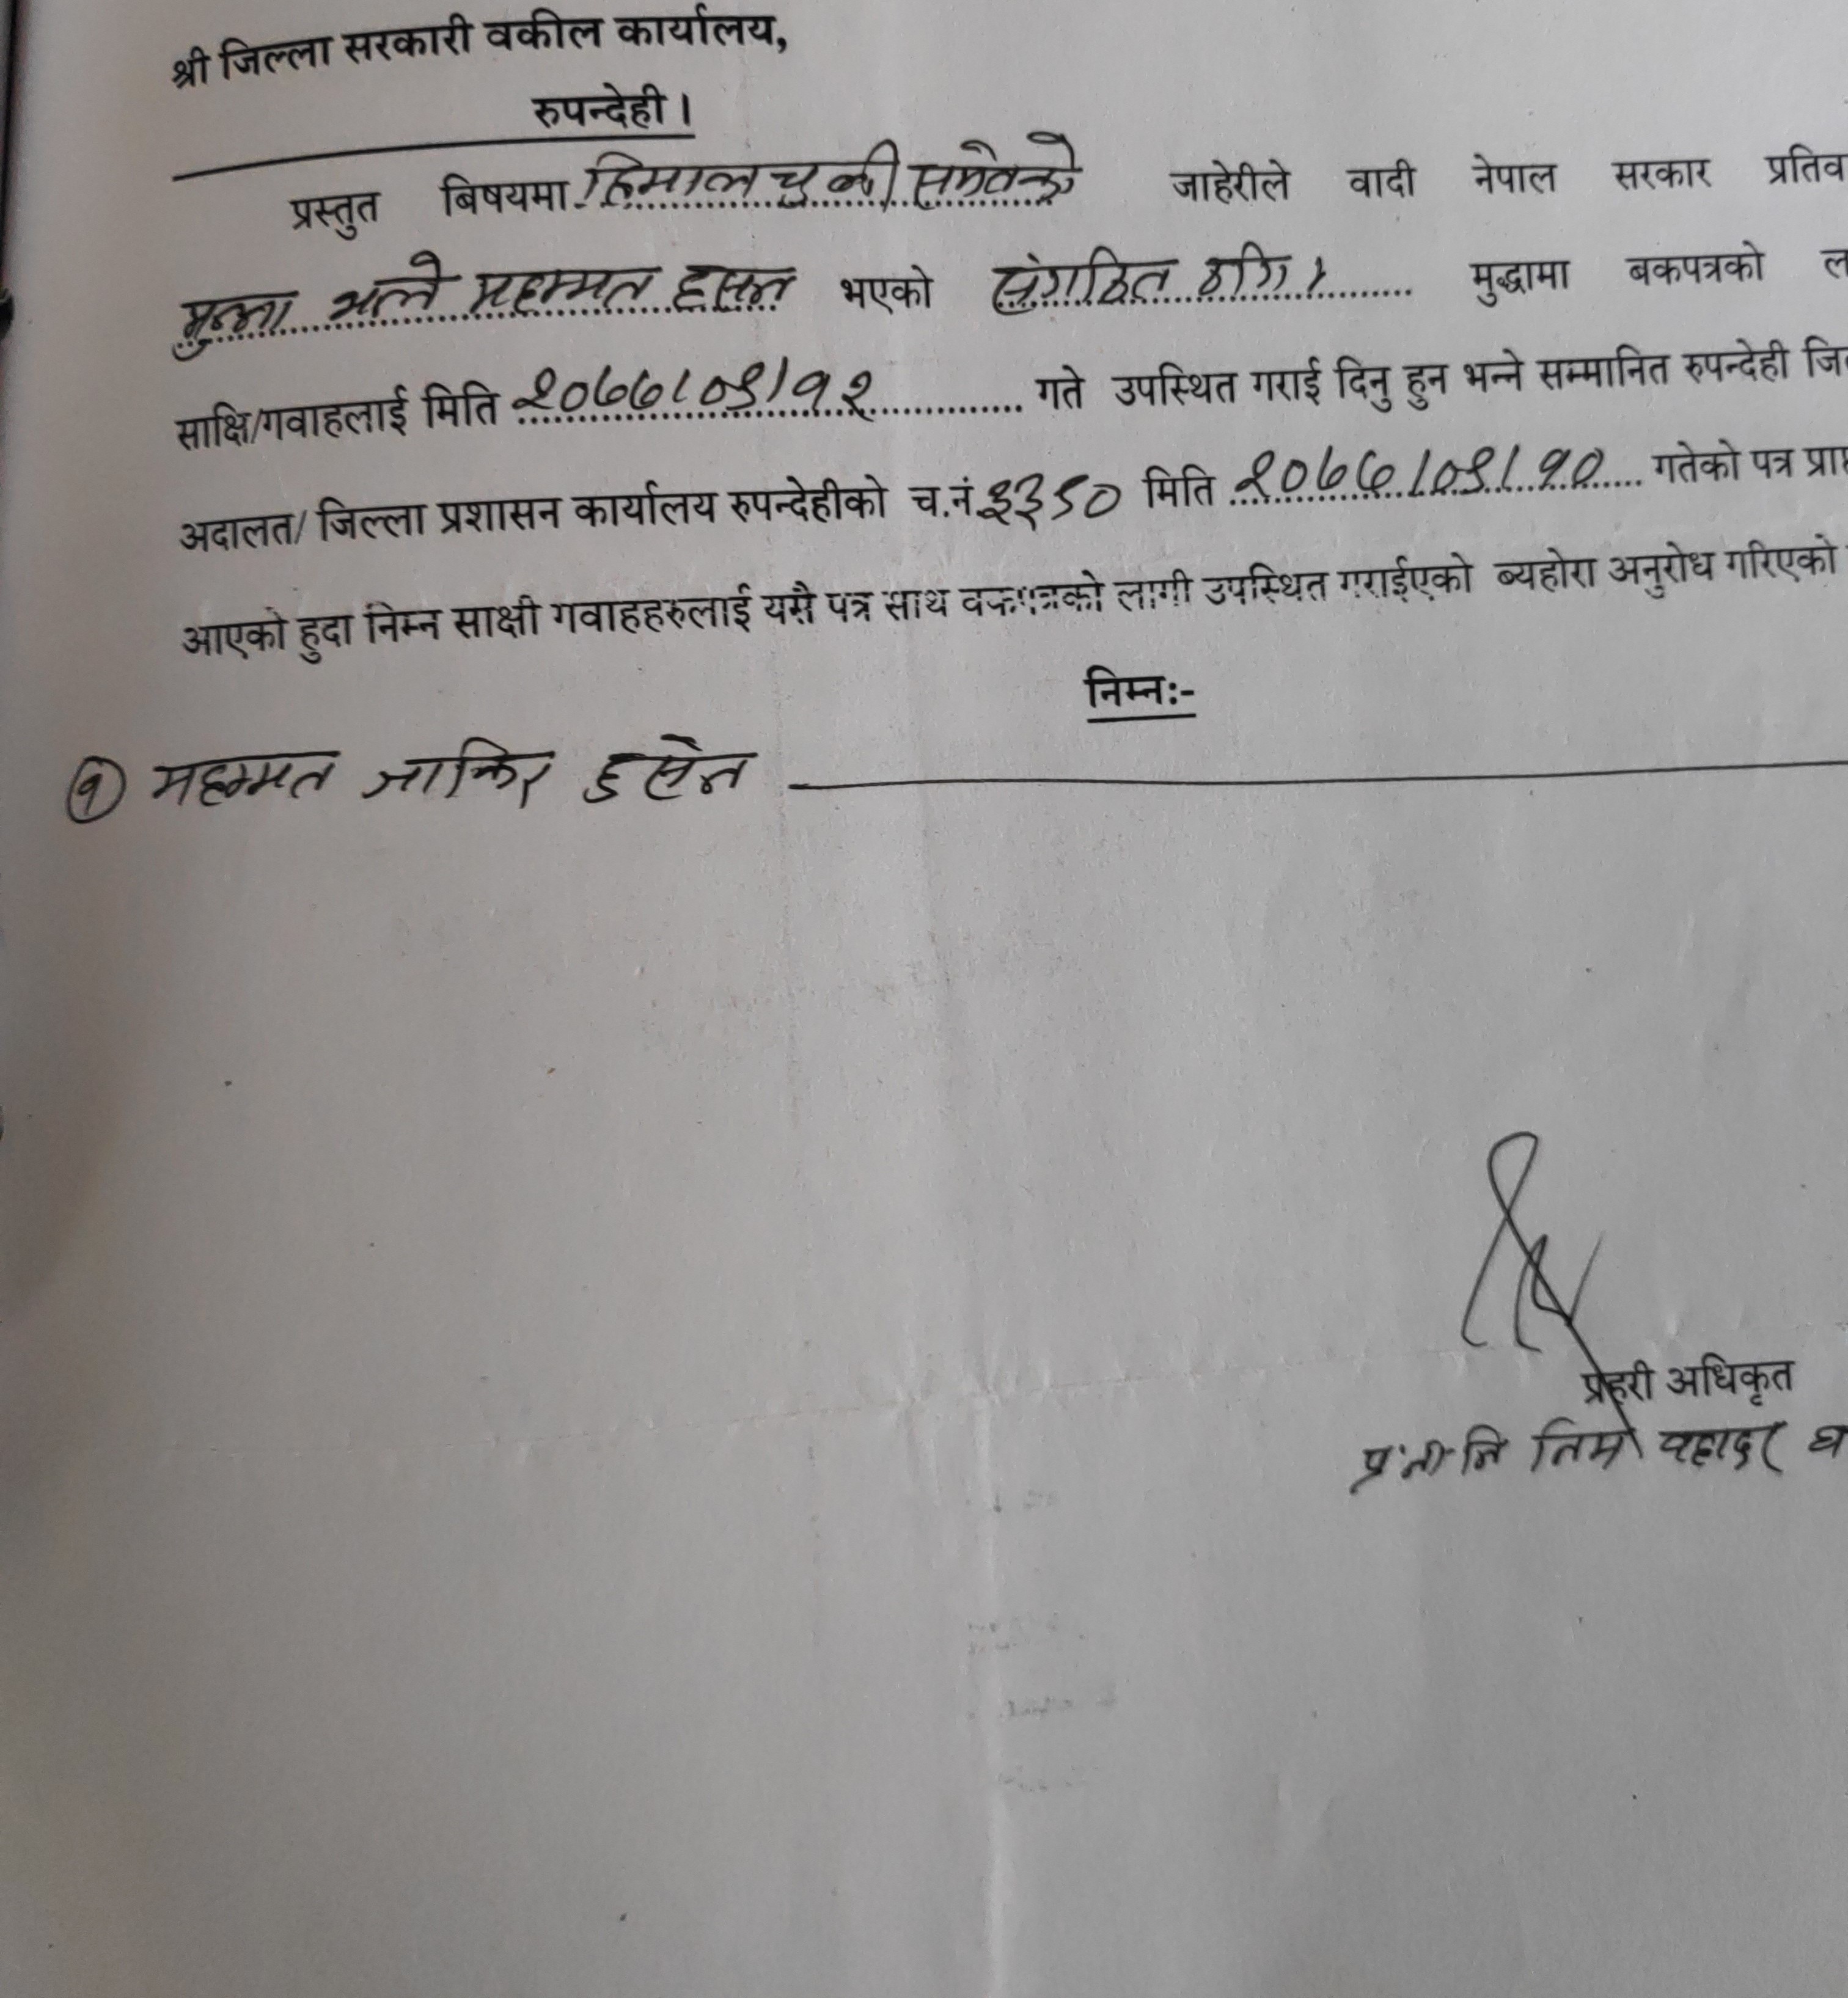 श्री जिल्ला सरकारी वकील कार्यालय,
रुपन्देही ।
प्रस्तुत बिषयमा हिमाल चु ली समेतको जाहेरीले वादी नेपाल सरकार प्रतिव
मुन्ना भन्ने महम्मत हसन भएको संगठित ठगि मुद्धामा बकपत्रको ल
साक्षि/गवाहलाई मिति २०७७/०९/१२ गते उपस्थित गराई दिनु हुन भन्ने सम्मानित रुपन्देही जि
अदालत/ जिल्ला प्रशासन कार्यालय रुपन्देहीको च.नं. मिति २०७७/०९/१० गतेको पत्र प्रा
आएको हुदा निम्न साक्षी गवाहहरुलाई यसै पत्र साथ वकपत्रको लागी उपस्थित गराईएको ब्यहोरा अनुरोध गरिएको
निम्नः-
१ महम्मत जाकिर हुसेन
प्रहरी अधिकृत
प्र नी नि वहादुर